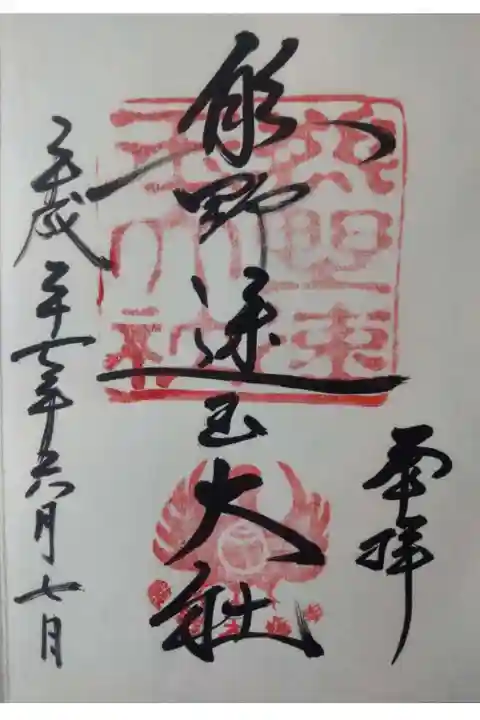 奉拝
熊野速玉大社
熊野速
玉大社
平成二十七年六月七日